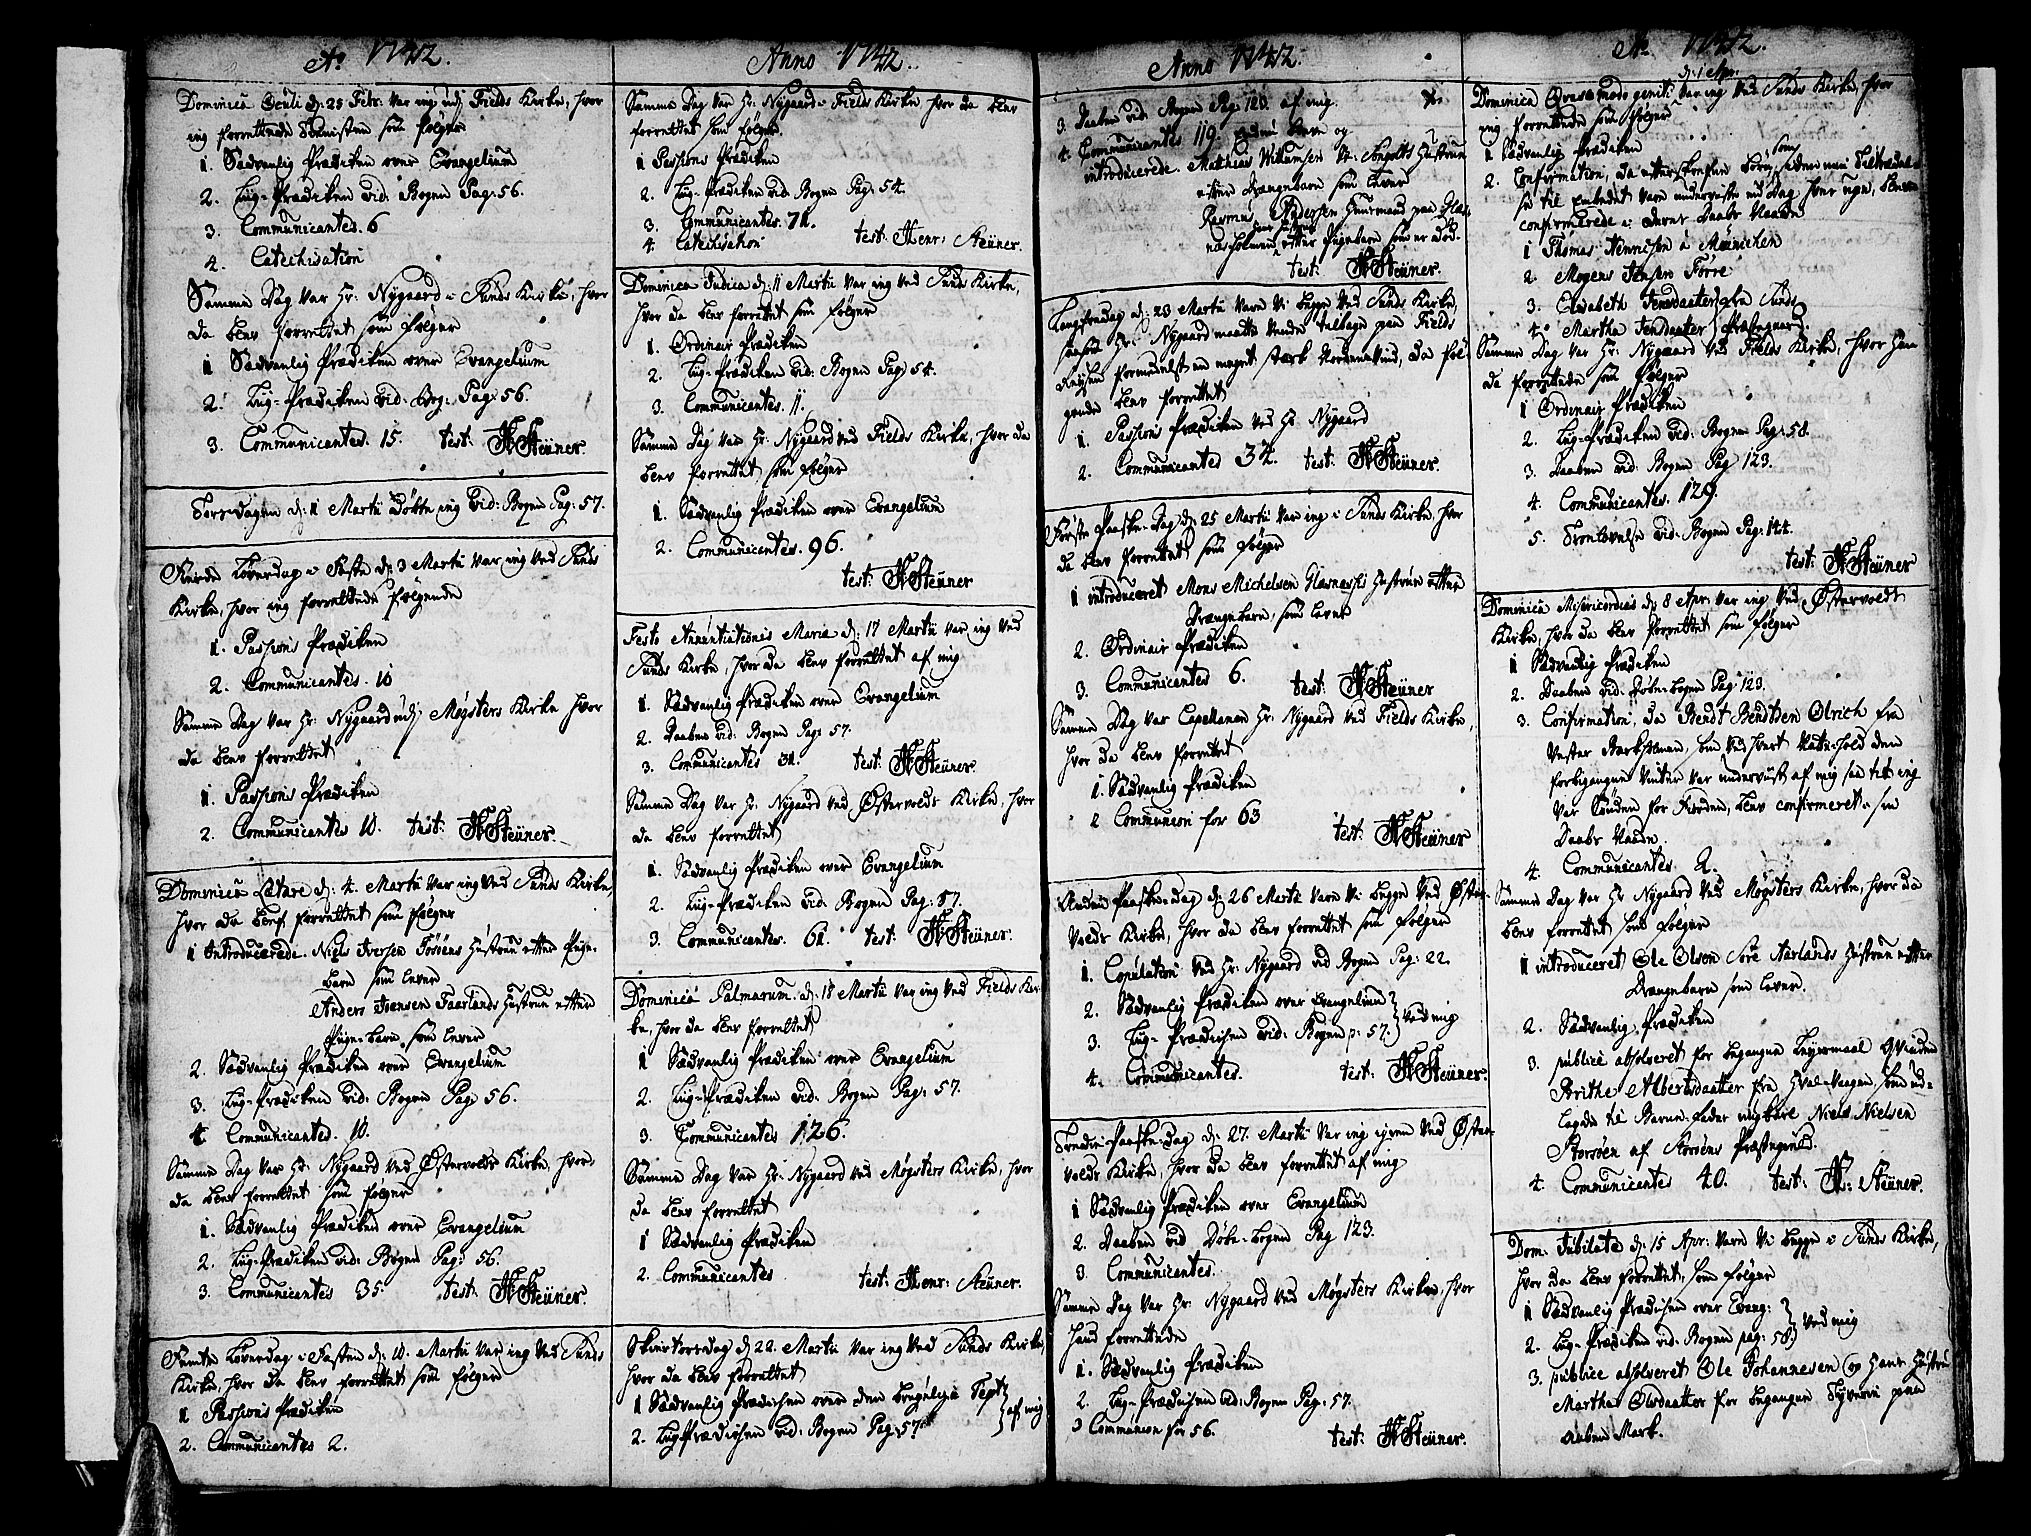 Ao 1742.
Dominica Oculi d: 25 Febr: var ieg udj Fields Kirke, hvor
ieg forrettede Tienisten som følger
1. Sædvanlig Prædiken over Evangelium
2. Liig-Prædiken vid: Bogen Pag: 56.
3. Communicantes. 6
4. Catechisation
Samme Dag var Hr: Nygaard i Sunds Kirke, hvor
da blev forrettet som følger
1 Sædvanlig Prædiken over Evangelium
2. Liig-Prædiken vid: Bog: Pag: 56.
3. Communicantes. 15. test: H Steüner.
Torsdagen d: 11 Martii Døbte ieg vid: Bogen Pag: 57.
Fierde Løverdag i Faste d: 3 Martii var ieg ved Sunds
Kirke, hvor ieg forrettede følgende
1. Passions Prædiken
2. Communicantes. 10
Samme Dag var Hr: Nygaard udj Møgsters Kirke hvor
da blev forrettet
1. Passions Prædiken
2. Communicantes 10. test: H Steüner.
Dominica Lætare d: 4. Martii var ieg ved Sunds Kirke,
hvor da blef forrettet som følger
1 Introducerede. Niels Iversen Hustrue efter Pige-
Barn som lever
Anders Jansen Faarlands Hustrue efter
Pige-Barn som lever
2. Sædvanlig Prædiken over Evangelium
3. Liig-Prædiken vid: Bogen Pag: 56.
4. Communicantes. 10.
Samme Dag var Hr: Nygaard ved Østervolds Kirke, hvor
da blev forrettet som følger
1. Sædvanlig Prædiken over Evangelium
2. Liig-Prædiken vid: Bogen Pag: 56.
3. Communicantes 35. test: H Steüner.
Femte Løverdag i Fasten d: 10. Martii var ieg ved Sunds
Kirke, hvor da blev forrettet som følger
1 Passions Prædiken
2. Communicantes 2.
Anno 1742.
Samme Dag var Hr: Nygaard i Fields Kirke, hvor da blev
forrettet som følger.
1 Passions Prædiken
2. Liig-Prædiken vid: Bogen Pag: 54.
3. Communicantes. 71.
4. Catechisation test: Henr: Steüner.
Dominica Judica d: 11 Martii var ieg ved Sunds Kirke,
hvor da blev forrettet som følger
1. Ordinair Prædiken
2. Liig-Prædiken vid: Bogen Pag: 54.
3. Communicantes. 11.
Samme Dag var Hr: Nygaard ved Fields Kirke, hvor da
blev forrettet som følger
1. Sædvanlig Prædiken over Evangelium
2. Communicantes. 96.
test: H Steüner
Festo Annuntiationis Mariæ d: 17 Martii var ieg ved
Sunds Kirke, hvor da blev forrettet af mig
1. Sædvanlig Prædiken over Evangelium
2. Daaben vid: Bogen Pag: 57.
3. Communicantes 31. test: H Steüner.
Samme Dag var Hr: Nygaard ved Østervolds Kirke, hvor
da blev forrettet
1. Sædvanlig Prædiken over Evangelium
2. Liig-Prædiken vid: Bogen Pag: 57.
3. Communicantes. 61. test: H Steüner.
Dominica Palmarum. d: 18 Martii var ieg ved Fields Kir-
ke, hvor da blev forrettet
1 Sædvanlig Prædiken over Evangelium
2. Liig-Prædiken vid: Bogen Pag: 57.
3. Communicantes 126.
Samme Dag var Hr: Nygaard ved Møgsters Kirke, hvor
da blev forrettet
1 Sædvanlig Prædiken
2. Communicantes test: Henr: Steüner.
Skiertorsdag d: 22. Martii var ieg ved Sunds Kirke,
hvor da blev forrettet
1 Sædvanlig Prædicken over den Text
2. Liig-Prædicken vid: Bogen Pag: 57 af mig
Anno 1742.
3. Daaben vid: Bogen Pag: 123. af mig.
4. Communicantes 119
introducerede. Mathias Willumsen Hustrue
efter Drengebarn som lever
Rasmus Pedersen Huusmand paa
efter Pigebarn som er død.
test: H Steüner.
Langfredag d: 23 Martii vare vi begge ved Sunds Kirke,
Hr: Nygaard maatte vende tilbage paa Fields
Reysen formedelst en meget stærk Nordenvind, da føl-
gende blev forrettet
1. Passions Prædiken ved Hr: Nygaard
2. Communicantes 34. test: H Steüner.
Første Paaske-Dag d: 25 Martii var ieg i Sunds Kirke, hvor
da blev forrettet som følger
1 introduceret Mons Michelsen Hustrue efter
Drengebarn, som lever
2. Ordinair Prædiken
3. Communicantes 6. test: H Steüner
Samme Dag var Capellanen Hr: Nygaard ved Fields Kirke,
hvor da blev forrettet
1. Sædvanlig Prædiken
2 Communion for 63
test: H Steüner
Anden Paaske-Dag d: 26 Martii vare vi begge ved Øster-
volds Kirke, hvor da blev forrettet som følger
1. Copulation ved Hr: Nygaard vid Bogen Pag: 22.
2. Sædvanlig Prædiken over Evangelium
3. Liig-Prædicken vid: Bogen p: 57. ved mig
4. Communicantes. test: H Steüner.
Tredie-Paaske-Dag d: 27. Martii var ieg igien ved Øster-
volds Kirke, hvor da blev forrettet af mig
1 Sædvanlig Prædiken over Evangelium
2. Daaben vid Døbe-Bogen Pag 123.
3. Communicantes.
Samme Dag var Hr: Nygaard ved Møgsters Kirke, hvor
hand forrettede
1. Sædvanlig Prædiken
2. Liig-Prædicken vid: Bogen Pag: 57.
3 Communion for 56. test: H Steüner.
Ao 1742.
d: 1 Apr:
Dominica Qvasimodo geniti var ieg ved Sunds Kirke, hvor
ieg forrettede som følger
1 Sædvanlig Prædiken
2. Confirmation, da efterskrefne Børn, som
til Embedet vare underviiste en Dag hver uge, bleve
confirmerede i deres Daabs Naade
1 Thomas Hennissen à Münichen
2 Mogens Jensen Førre
3. Elisabeth Jensdaatter fra Sunds
4. Martha Jensdaatter Præstegaard.
Samme Dag var Hr: Nygaard ved Fields Kirke, hvor Han
da forrettede som følger
1 Ordinair Prædiken
2. Liig-Prædiken vid: Bogen Pag: 58.
3. Daaben vid: Bogen Pag 123.
4. Communicantes. 129.
5. Trolovelse vid: Bogen Pag: 144.
test: H Steüner
Dominica Misericordias d: 8 Apr: var ieg ved Østervolds
Kirke, hvor da blev forrettet som følger
1 Sædvanlig Prædiken
2. Daaben vid: Døbe-Bogen Pag: 123.
3. Confirmation, da Bendt Bendtsen Olrich fra
Vester
forbigangne Vinter var underviist af mig saa tit ieg
var Sønden for Fiorden, blev confirmeret i sin
Daabs Naade.
4. Communicantes. 2.
Samme Dag var Hr: Nygaard ved Møgsters Kirke, hvor da
blev forrettet som følger
1 introduceret Ole Olsen Søre Hustrue efter
Drengebarn som lever.
2. Sædvanlig Prædiken
3. publicè absolveret for begangne Leyermaal Qvinden
Brithe Albertsdaatter fra Hval-Vaagen, som ud-
lagde til Barne-Fader ungkarl Niels Nielsen
Storsøen af Storøens Præstegield.
4. Communicantes 40. test: H: Steüner.
Dom. Jubilate d: 15 Apr: vare vi begge i Sunds Kirke,
hvor da blev forrettet, som følger
1 Sædvanlig Prædicken over Evang:
2. Liig-Prædiken vid: Bogen pag: 58 ved mig
3. publice absolveret Ole Johannesen og Hans Hustru
Martha Olsdaatter for begangen Tyverie paa
aaben Mark.